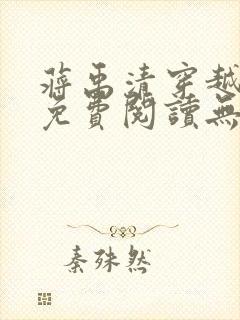 蔣禹清穿越
免費閱讀無
秦殊然